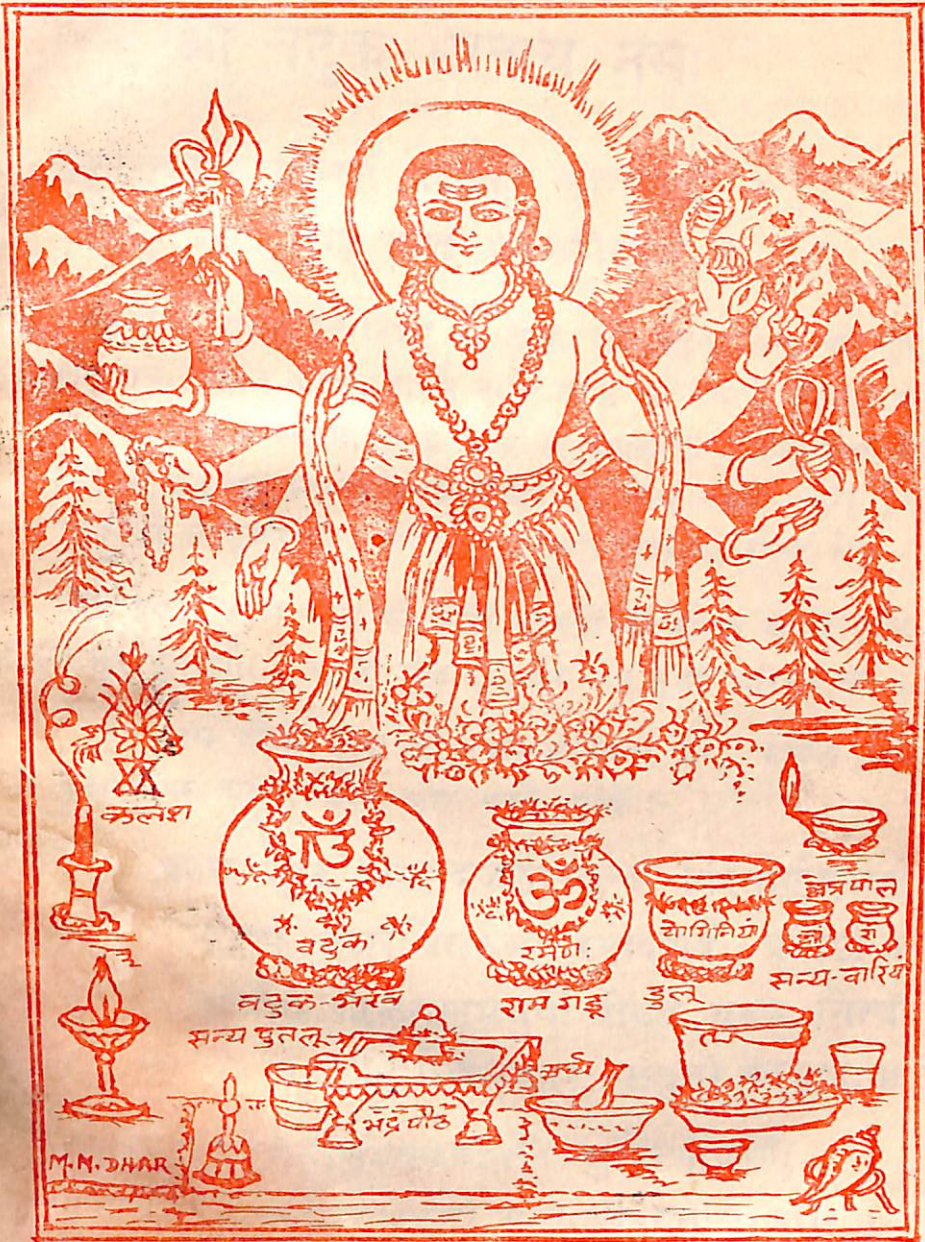 कलश
ॐ
वटुक
ॐ
रमणः
योगिनियां
क्षेत्रपाल
रा
वटुक-भैरव
राम गडू
डुलू
सन्य-वारियां
सन्य पुतलू
अर्घ्य
भद्रपीठ
M.N. DHAR